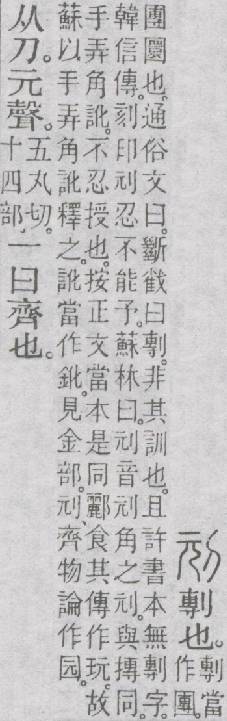 刓 剸也。
剸當
作團。
團圜也。通俗文曰。斷截曰剸。非其訓也。且許書本無剸字。
韓信傳。刻印刓忍不能予。蘇林曰。刓音刓角之刓。與摶同。
手弄角訛。不忍授也。按正文當本是同。酈食其傳作玩。故
蘇以手弄角訛釋之。訛當作鈋。見金部。刓、齊物論作园。
从刀。元聲。
五丸切。
十四部。
一曰齊也。